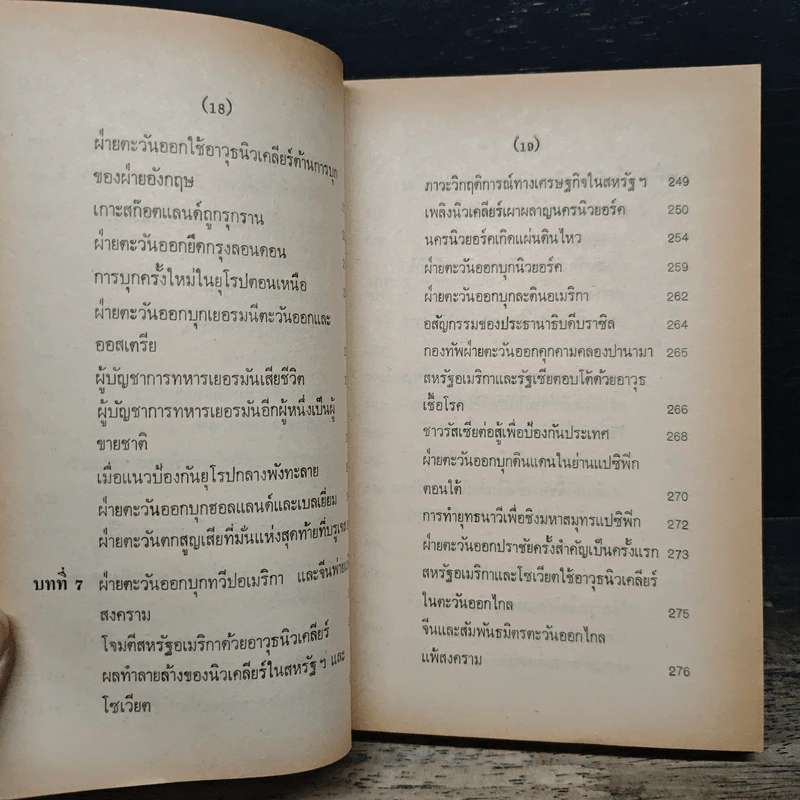 (18)
ฝ่ายตะวันออกใช้อาวุธนิวเคลียร์ต้านการบุก
ของฝ่ายอังกฤษ
เกาะสก๊อตแลนด์ถูกรุกราน
ฝ่ายตะวันออกยึดกรุงลอนดอน
การบุกครั้งใหม่ในยุโรปตอนเหนือ
ฝ่ายตะวันออกบุกเยอรมนีตะวันออกและ
ออสเตรีย
ผู้บัญชาการทหารเยอรมันเสียชีวิต
ผู้บัญชาการทหารเยอรมันอีกผู้หนึ่งเป็นผู้
ขายชาติ
เมื่อแนวป้องกันยุโรปกลางพังทะลาย
ฝ่ายตะวันออกบุกฮอลแลนด์และเบลเยี่ยม
ฝ่ายตะวันตกสูญเสียที่มั่นแห่งสุดท้ายที่
บทที่ 7 ฝ่ายตะวันออกบุกทวีปอเมริกา และจีนพ่าย
สงคราม
โจมตีสหรัฐอเมริกาด้วยอาวุธนิวเคลียร์
ผลทำลายล้างของนิวเคลียร์ในสหรัฐ ฯ และ
โซเวียต
(19)
ภาวะวิกฤติการณ์ทางเศรษฐกิจในสหรัฐ ฯ 249
เพลิงนิวเคลียร์เผาผลาญนครนิวยอร์ค 250
นครนิวยอร์คเกิดแผ่นดินไหว 254
ฝ่ายตะวันออกบุกนิวยอร์ค 259
ฝ่ายตะวันออกบุกละตินอเมริกา 262
อสัญกรรมของประธานาธิบดีบราซิล 264
กองทัพฝ่ายตะวันออกคุกคามคลองปานามา 265
สหรัฐอเมริกาและรัฐเซียตอบโต้ด้วยอาวุธ
เชื้อโรค 266
ชาวรัสเซียต่อสู้เพื่อป้องกันประเทศ 268
ฝ่ายตะวันออกบุกดินแดนในย่านแปซิฟิก
ตอนใต้ 270
การทำยุทธนาวีเพื่อชิงมหาสมุทรแปซิฟิก 272
ฝ่ายตะวันออกปราชัยครั้งสำคัญเป็นครั้งแรก 273
สหรัฐอเมริกาและโซเวียตใช้อาวุธนิวเคลียร์
ในตะวันออกไกล 275
จีนและสัมพันธมิตรตะวันออกไกล
แพ้สงคราม 276